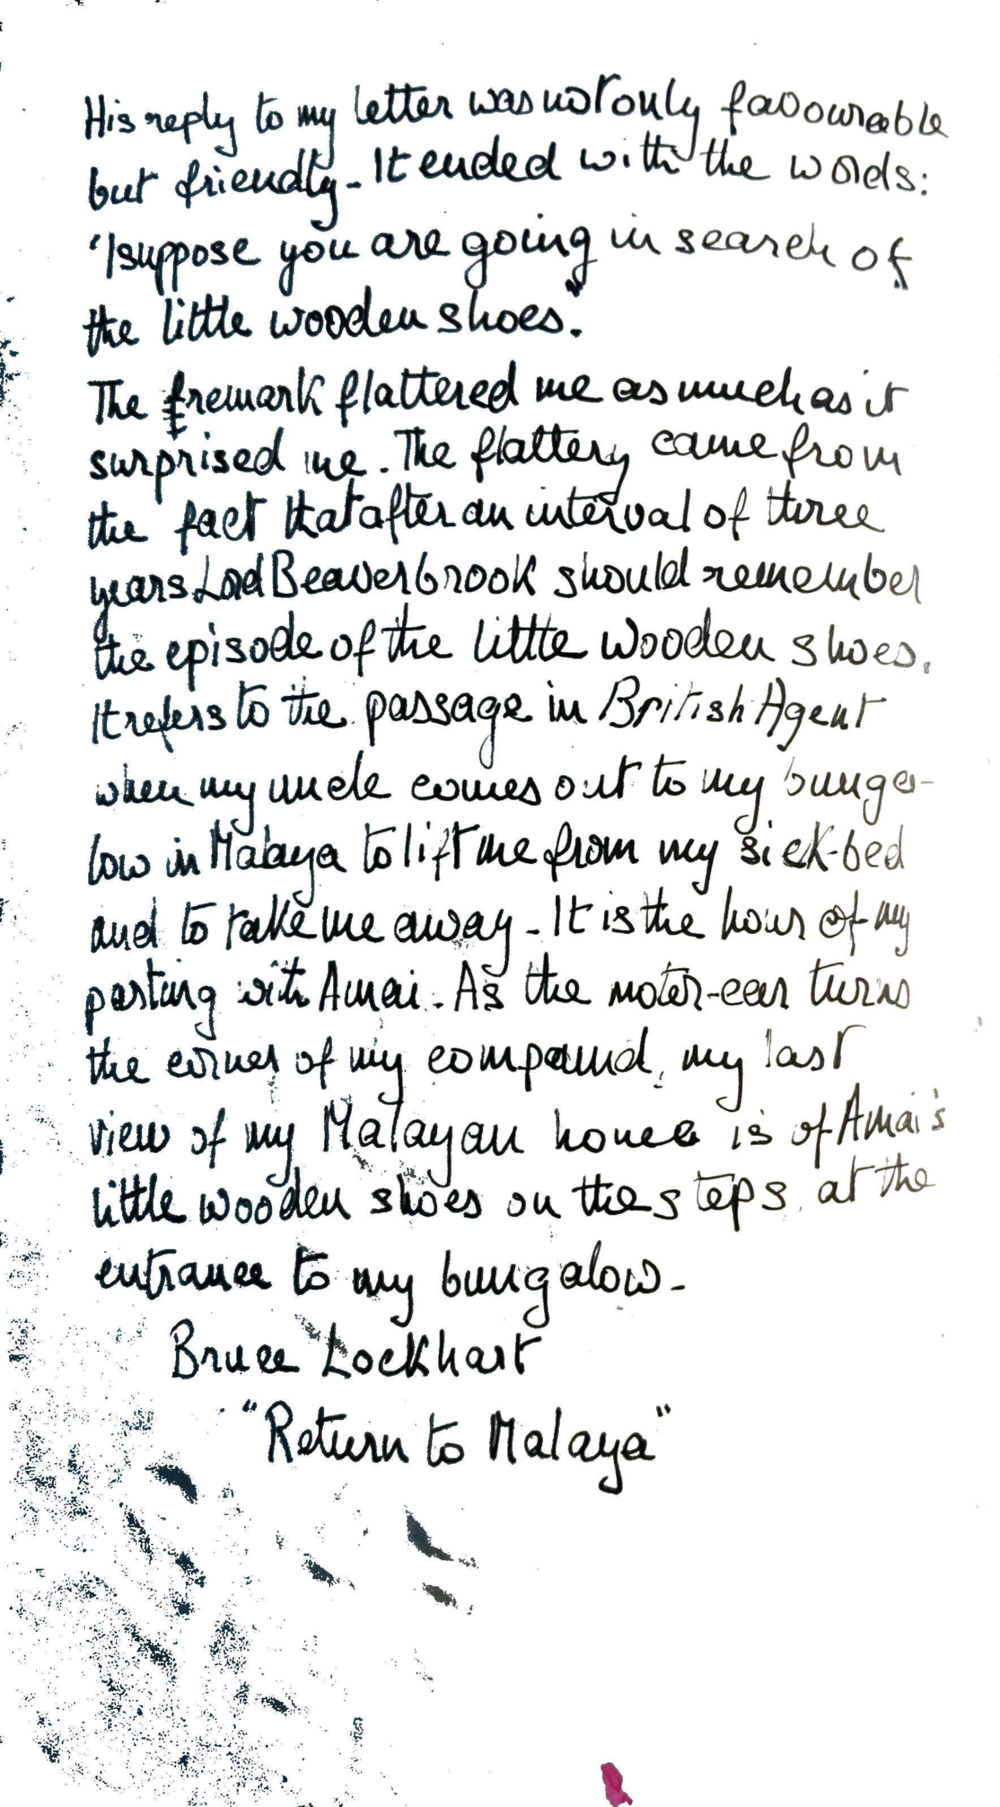 His reply to my letter was not only favourable
but friendly - It ended with the words:
'I suppose you are going in search of
the little wooden shoes'.
The remark flattered me as much as it
surprised me. The flattery came from
the fact that after an interval of three
years Lord Beaverbrook should remember
the episode of the little wooden shoes.
It refers to the passage in British Agent
when my uncle comes out to my bunga-
low in Malaya to lift me from my sick-bed
and to take me away - It is the hour of my
parting with Amai. As the motor-car turns
the corner of my compound, my last
view of my Malayan home is of Amai's
little wooden shoes on the steps at the
entrance to my bungalow -
Bruce Lockhart
"Return to Malaya"